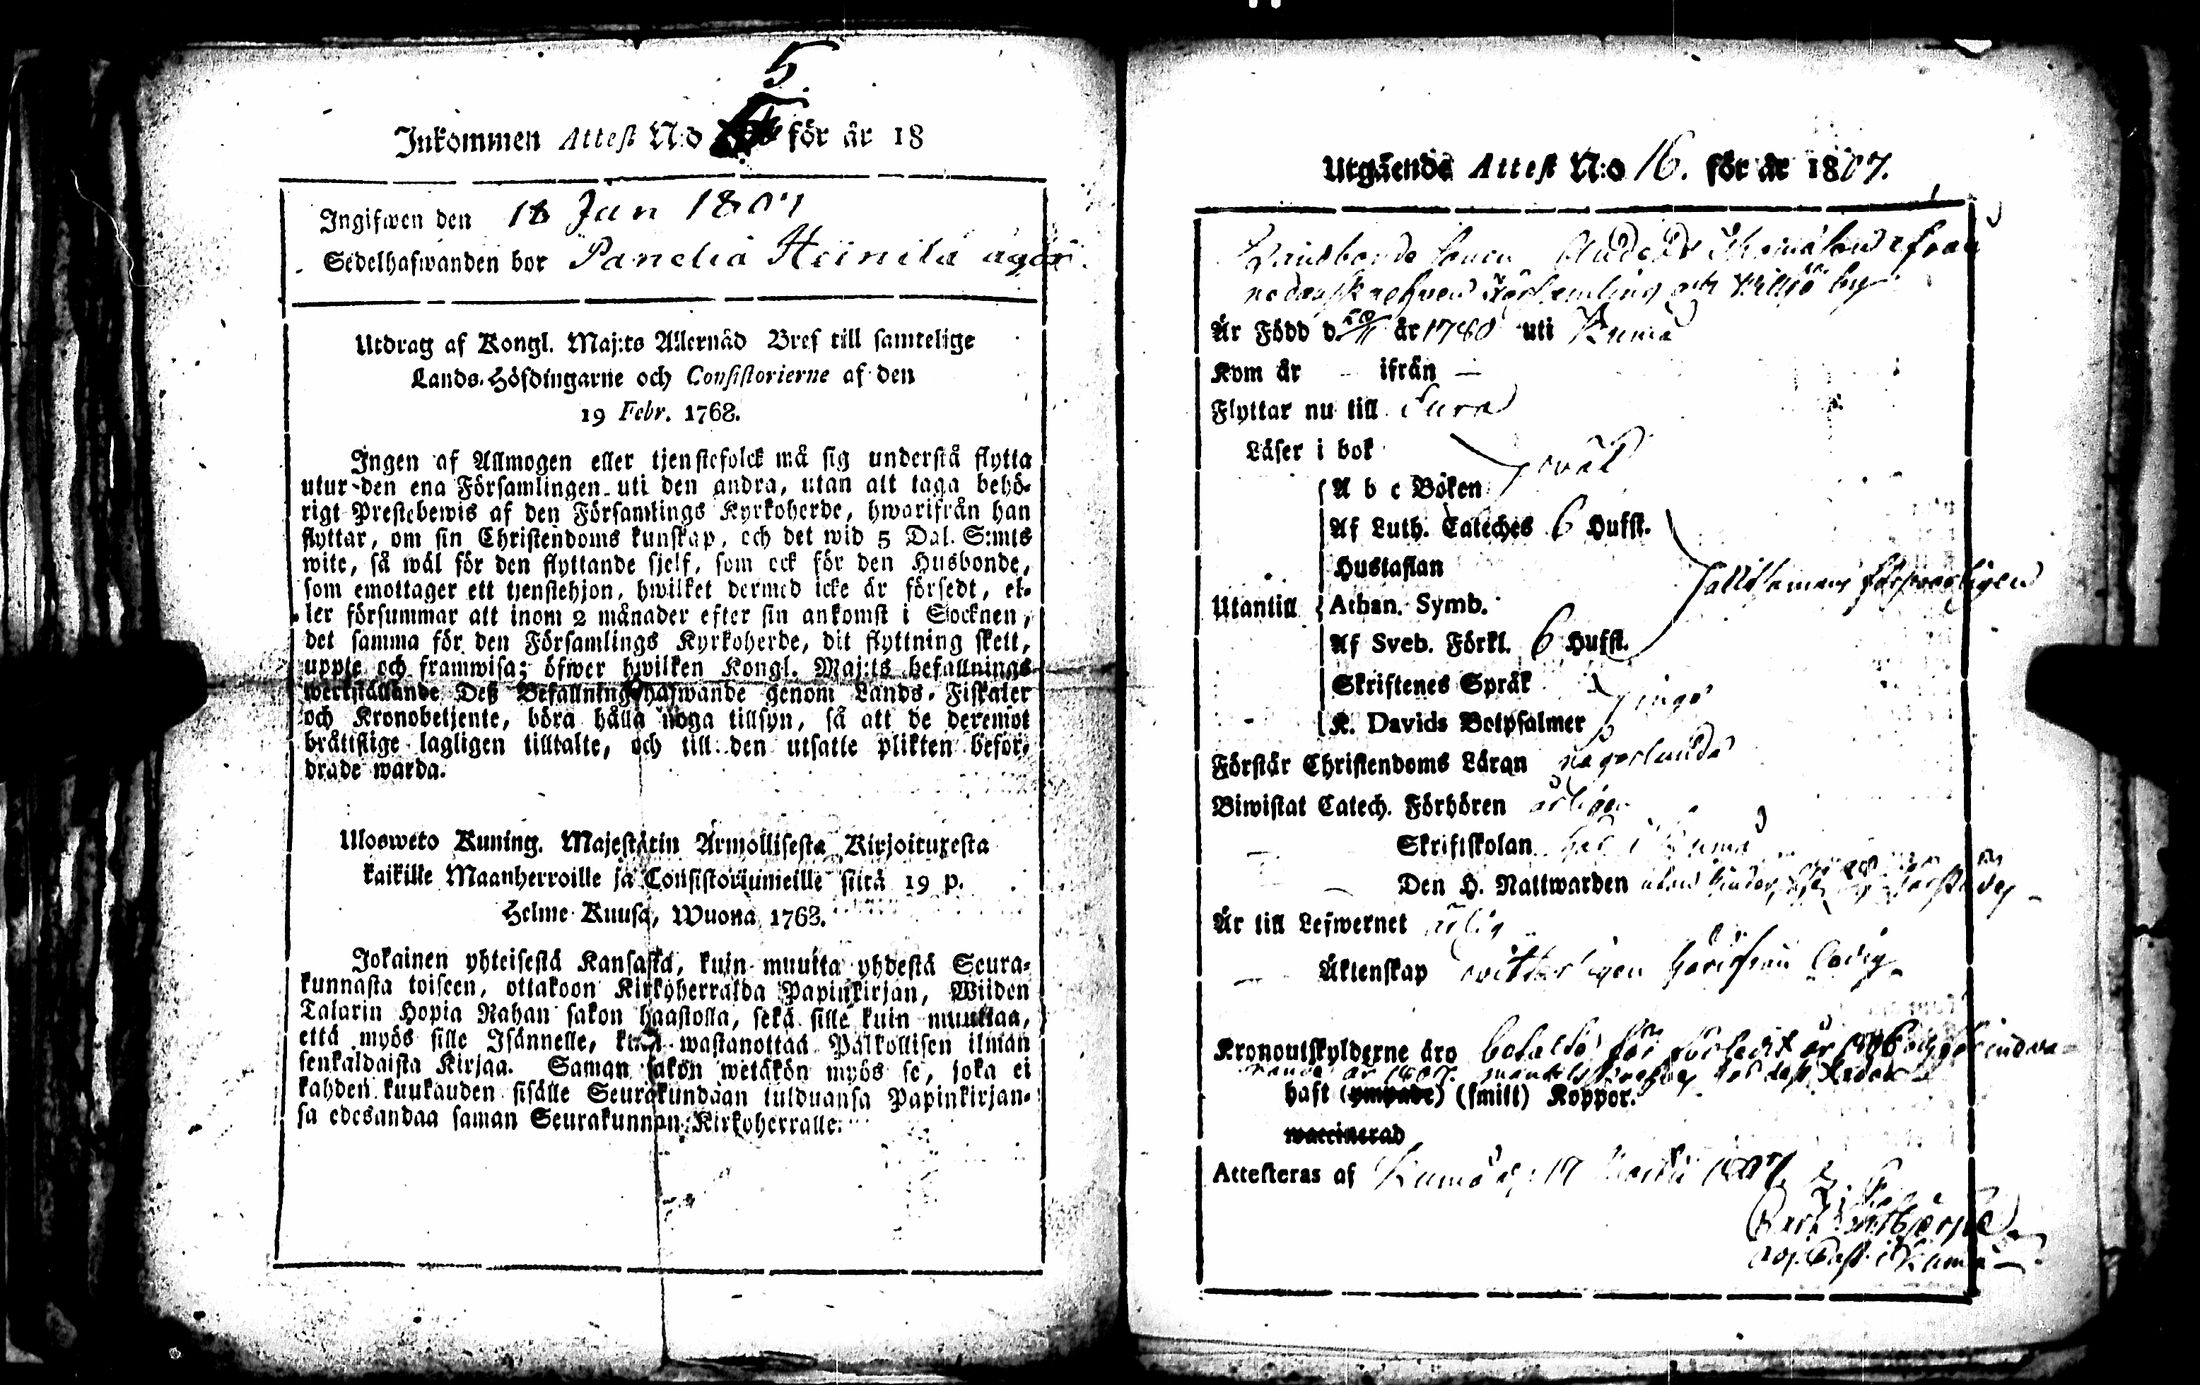 5
Inkommen Attest N:o för år 18
Ingifwen den 18 Jan 1807
Sedelhafwanden bor Panelia Heinilä ägor
Utdrag af Kongl. Maj:ts Allernåd Bref till samtelige
Lands-Höfdingarne och Consistorierne af den
19 Febr. 1768.
Ingen af Allmogen eller tjenstefolck må sig understå flytta
utur den ena Församlingen uti den andra, utan att taga behö-
rigt Prestebewis af den Församlings Kyrkoherde, hwarifrån han
flyttar, om sin Christendoms kunskap, och det wid 5 Dal. S:mts
wite, så wäl för den flyttande sjelf, som ock för den Husbonde,
som emottager ett tjenstehjon, hwilket dermed icke är försedt, el-
ler försummar att inom 2 månader efter sin ankomst i Socknen,
det samma för den Församlings Kyrkoherde, dit flyttning skett,
upple och framwisa; öfwer hwilken Kongl. Maj:ts befallnings
werkställande Deß Befallningshafwande genom Lands-Fiskaler
och Kronobetjente, böra hålla noga tillsyn, så att de deremot
bråttslige lagligen tilltalte, och till den utsatte plikten befor-
drade warda.
Ulosweto Kuning. Majestätin Armollisesta Kirjoituxesta
kaikille Maanherroille ja Consistoriumeille siitä 19 p.
Helme Kuusa, Wuona 1768.
Jokainen yhteisestä Kansasta, kuin muutta yhdestä Seura-
kunnasta toiseen, ottakoon Kirkoherralda Papinkirjan, Wiiden
Talarin Hopia Rahan sakon haastolla, sekä sille kuin muuttaa,
että myös sille Isännelle, kuin wastanottaa Palkollisen ilman
senkaldaista Kirjaa. Saman sakon wetäkön myös se, joka ei
kahden kuukauden sisälle Seurakundaan tulduansa Papinkirjan-
sa edesandaa saman Seurakunnan Kirkoherralle.
Utgående Attest N:o 16. för år 1807.
Landbonde Sonen Anders Thomasson ifrån
nedanskrefwen Församling och by
Är Född d. 20/11 år 1780 uti Kumo
Kom år — ifrån —
Flyttar nu till Eura
Läser i bok
wäl
A b c Boken
Af Luth. Cateches 6 Hufst.
Hustaflan
alltsamans försvarligen
Utantill Athan. Symb.
Af Sveb. Förkl. 6 Hufst.
Skriftenes Språk
inga
K. Davids Botpsalmer
Förstår Christendoms Läran någorlunda
Biwistat Catech. Förhören årligen
Skriftskolan här i Kumo
Den H. Nattwarden
Är till Lefwernet ärlig
Äktenskap witterligen härifrån ledig
Kronoutskylderne äro betalte för förledit år 1806 och för indewa-
rande år 1807.
haft (ympade) (smitt) Koppor.
waccinerad
Attesteras af Kumo d. 17 Martii 1807
i Kumo